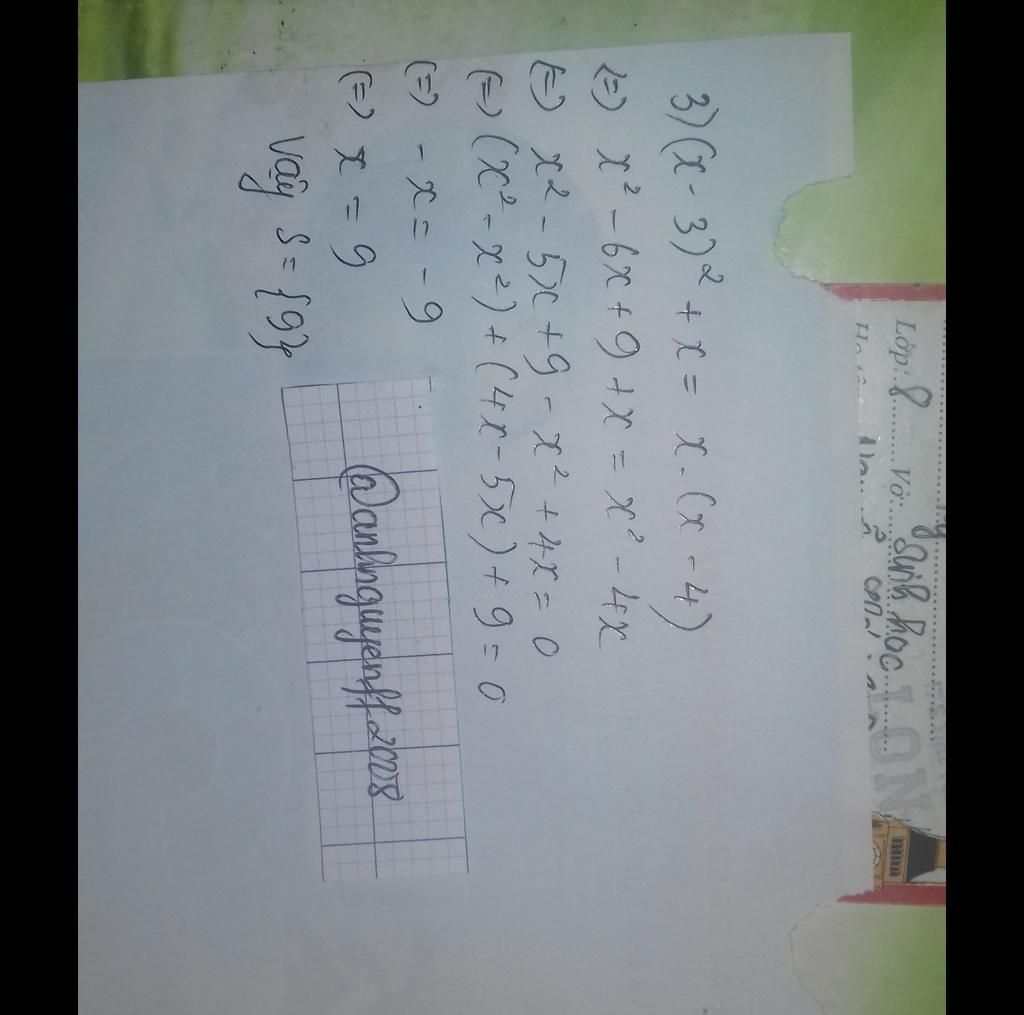 3) (x - 3)² + x = x . (x - 4)
(=) x² - 6x + 9 + x = x² - 4x
(=) x² - 5x + 9 - x² + 4x = 0
(=) (x² - x²) + (4x - 5x) + 9 = 0
(=) - x = - 9
(=) x = 9
Vậy S = {9}
@anhnguyenff2008
Lớp: 8 Vở: Sinh học
LON